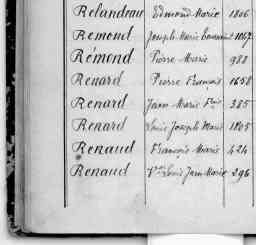 Relandeau Edmond Marie 1806
Remond Joseph Marie 1067
Rémond Pierre Marie 988
Renard Pierre François 1658
Renard Jean Marie Fois 385
Renard Louis Joseph Marie 1805
Renaud François Marie 424
Renaud Louis Jean Marie 296